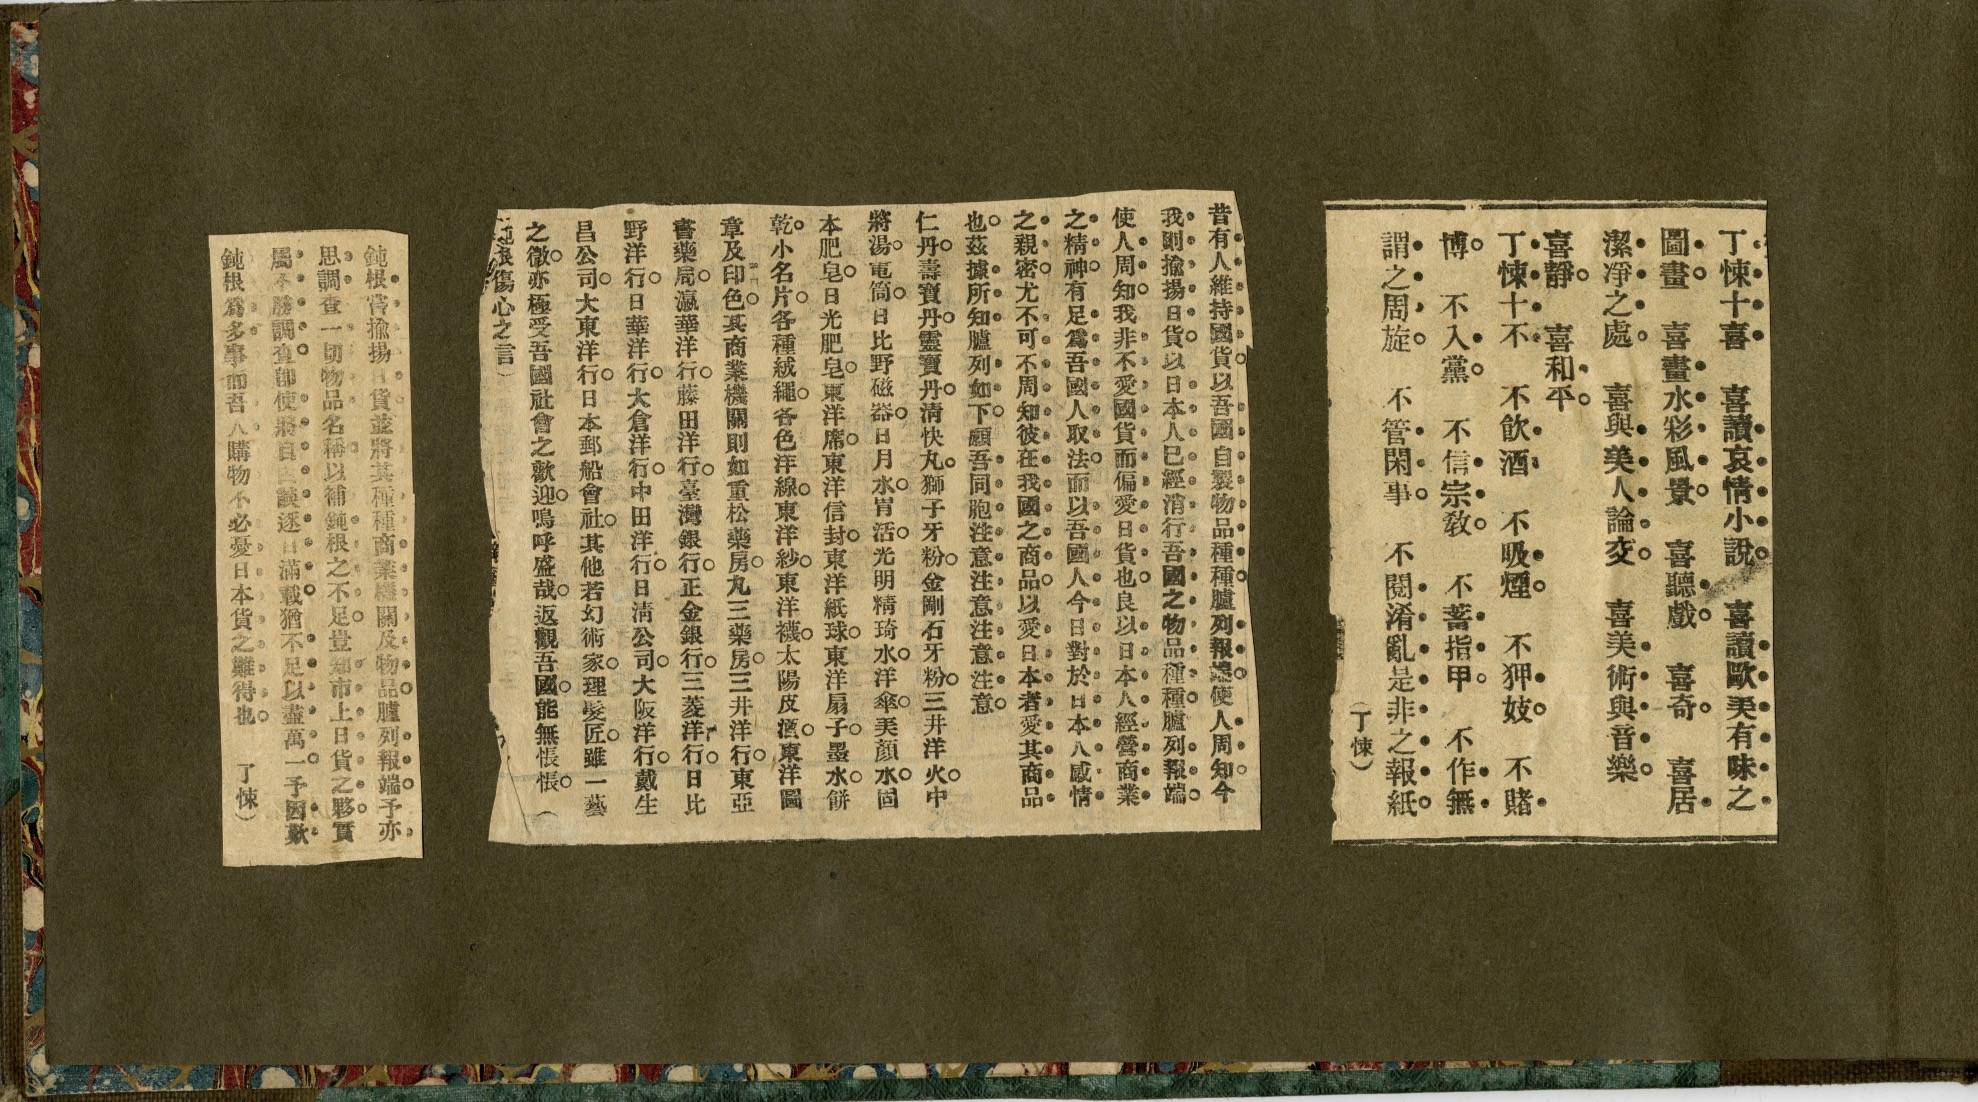 丁悚十喜　喜讀哀情小說　喜讀歐美有味之
圖畫　喜畫水彩風景　喜聽戲　喜奇　喜居
潔凈之處　喜與美人論交　喜美術與音樂
喜靜　喜和平
丁悚十不　不飲酒　不吸煙　不狎妓　不賭
博　不入黨　不信宗敎　不蓄指甲　不作無
謂之周旋　不管閑事　不閱淆亂是非之報紙
（丁悚）
昔有人維持國貨以吾國自製物品種種臚列報端使人周知今
我則揄揚日貨以日本人已經消行吾國之物品種種臚列報端
使人周知我非不愛國貨而偏愛日貨也良以日本人經營商業
之精神有足爲吾國人取法而以吾國人今日對於日本人感情
之親密尤不可不周知彼在我國之商品以愛日本者愛其商品
也茲據所知臚列如下願吾同胞注意注意注意注意
仁丹壽寶丹靈寶丹清快丸獅子牙粉金剛石牙粉三井洋火中
將湯電筒日比野磁器日月水胃活光明精琦水洋傘美顏水固
本肥皂日光肥皂東洋席東洋信封東洋紙球東洋扇子墨水餅
乾小名片各種絨繩各色洋線東洋紗東洋襪太陽皮酒東洋圖
章及印色其商業機關則如重松藥房丸三藥房三井洋行東亞
書藥局瀛華洋行藤田洋行臺灣銀行正金銀行三菱洋行日比
野洋行日華洋行大倉洋行中田洋行日清公司大阪洋行戴生
昌公司大東洋行日本郵船會社其他若幻術家理髮匠雖一藝
之微亦極受吾國社會之歡迎嗚呼盛哉返觀吾國能無悵悵（
鈍根傷心之言）
鈍根嘗揄揚日貨並將其種種商業機關及物品臚列報端予亦
思調查一切物品名稱以補鈍根之不足豈知市上日貨之夥實
屬不勝調查卽使將自由談逐日滿載猶不足以盡萬一予因歎
鈍根爲多事而吾人購物不必憂日本貨之難得也　（丁悚）